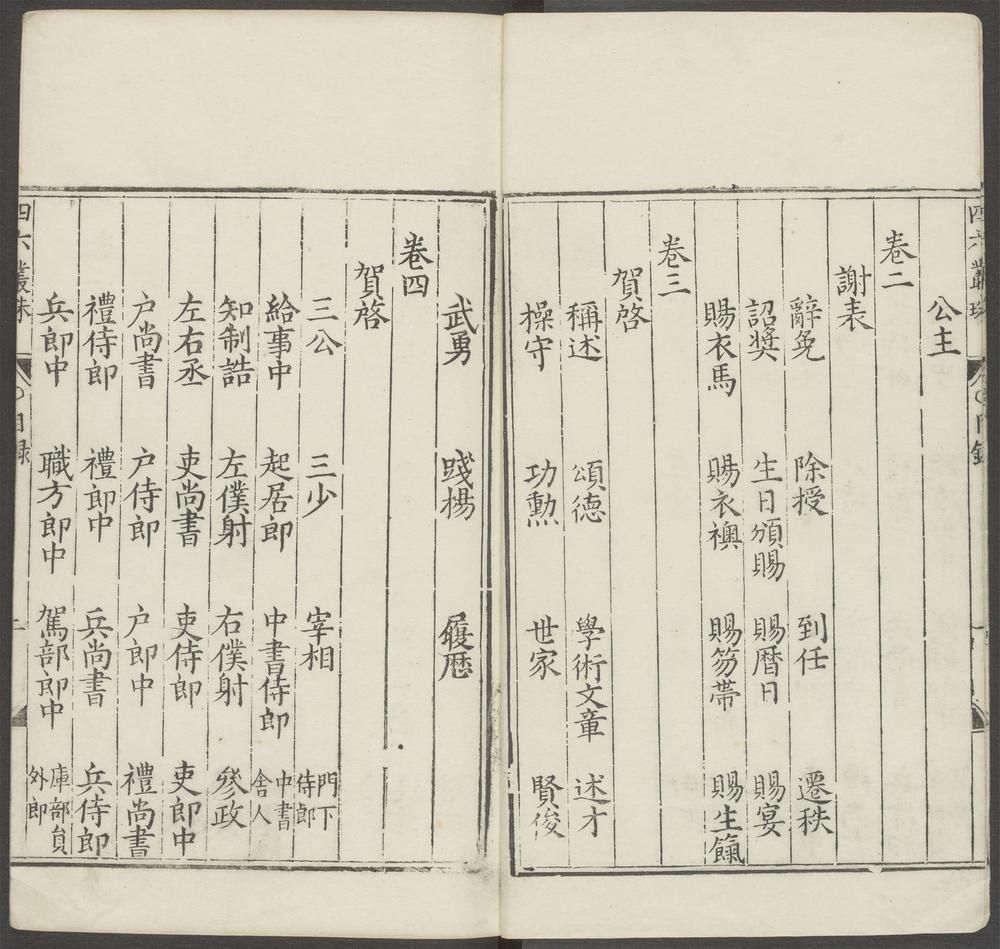 公主
卷二
謝表
辭免 除授 到任 遷秩
詔奬 生日頒賜 賜曆日 賜宴
賜衣馬 賜衣襖 賜笏帶 賜生餼
卷三
賀啓
稱述 頌德 學術文章 述才
操守 功勲 世家 賢俊
武勇 踐楊 履歷
卷四
賀啓
三公 三少 宰相 門下侍郎
給事中 起居郎 中書侍郎 中書舎人
知制誥 左僕射 右僕射 叅政
左右丞 吏尚書 吏侍郎 吏郎中
户尚書 户侍郎 户郎中 禮尚書
禮侍郎 禮郎中 兵尚書 兵侍郎
兵郎中 職方郎中 駕部郎中 庫部員外郎
四六叢珠 目録